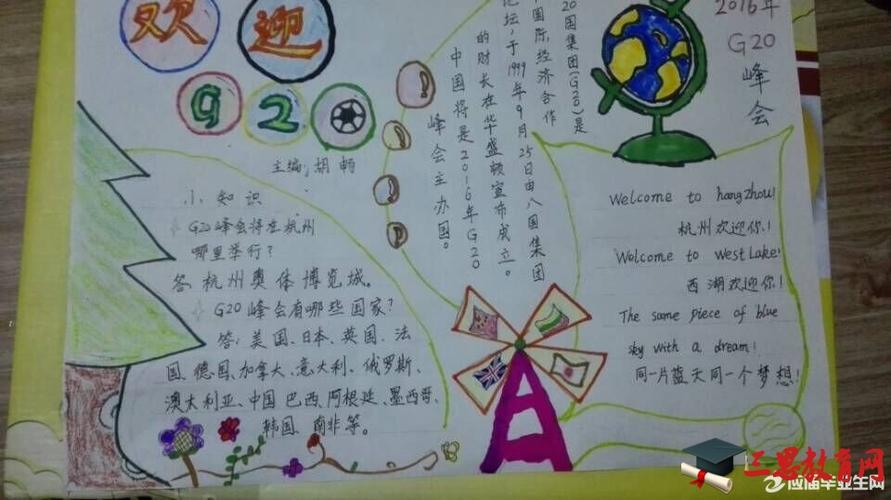 欢迎
G20
主编:胡畅
小知识
G20峰会将在杭州
哪里举行?
答:杭州奥体博览城。
G20峰会有哪些国家?
答:美国、日本、英国、法
国、德国、加拿大、意大利、俄罗斯、
澳大利亚、中国、巴西、阿根廷、墨西哥、
韩国、南非等。
20国集团(G20)是
国际经济合作
论坛,于1999年9月25日由八国集团
的财长在华盛顿宣布成立。
中国将是2016年G20
峰会主办国。
2016年
G20
峰会
Welcome to hangzhou!
杭州欢迎你!
Welcome to west Lake!
西湖欢迎你!
The same piece of blue
sky with a dream!
同一片蓝天同一个梦想!
三思教育网
应届毕业生网